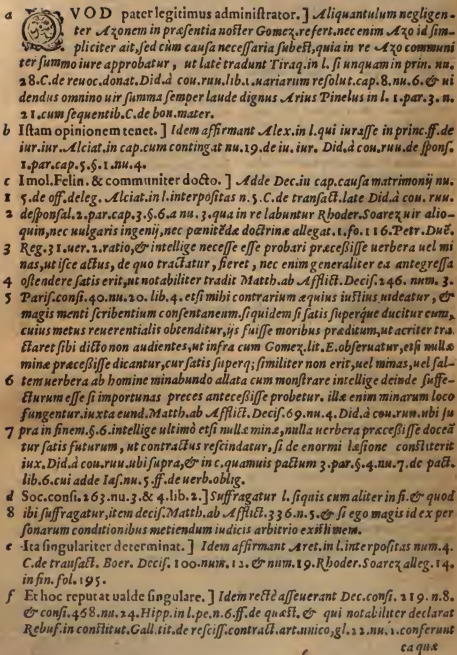 a QVOD pater legitimus adminiſtrator. ] Aliquantulum negligen-
ter Azonem in præſentia noſter Gomez.refert,nec enim Azo id ſim-
pliciter ait,ſed cùm cauſa neceſſaria ſubeſt,quia in re Azo communi
ter ſummo iure approbatur, ut latè tradunt Tiraq.in l. ſi unquam in prin. nu.
28.C.de reuoc.donat.Did.à cou.ruu.lib.1.uariarum reſolut.cap.8.nu.6.& ui
dendus omnino uir ſumma ſemper laude dignus Arius Pinelus in l. 1.par.3.n.
21.cum ſequentib.C.de bon.mater.
b Iſtam opinionem tenet. ] Idem affirmant Alex.in l.qui iuraſſe in princ.ff.de
iur.iur.Alciat.in cap.cum contingat nu.19.de iu. iur. Did.à cou.ruu.de ſponſ.
1.par.cap.5.§.1.nu.4.
c Imol.Felin. & communiter docto. ] Adde Dec.iu cap.cauſa matrimonij nu.
1 5.de off.deleg. Alciat.in l.interpoſitas n.5.C.de tranſact.late Did.à cou. ruu.
2 deſponſal.2.par.cap.3.§.6.a nu.3.qua in re labuntur Rhoder.Soarez uir alio-
quin,nec uulgaris ingenij,nec pœnitēdæ doctrinæ allegat.1.fo.116.Petr.Duē.
3 Reg.31.uer.2.ratio,& intellige neceſſe eſſe probari præceſſiſſe uerbera uel mi
nas,ut iſce actus, de quo tractatur, fieret, nec enim generaliter ea antegreſſa
4 oſtendere ſatis erit,ut notabiliter tradit Matth.ab Afflict.Deciſ.246. num. 3.
5 Pariſ.conſi.40.nu.20. lib.4.etſi mihi contrarium æquius iuſtius uideatur, &
magis menti ſcribentium conſentaneum.ſiquidem ſi ſatis ſuperque ducitur eum,
cuius metus reuerentialis obtenditur,ijs fuiſſe moribus præditum,ut acriter tra
ctaret ſibi dicto non audientes,ut infra cum Gomez.lit.E.obſeruatur,etſi nullæ
minæ præceſſiſſe dicantur,cur ſatis ſuperq; ſimiliter non erit,uel minas,uel ſal-
6 tem uerbera ab homine minabundo allata cum monſtrare intellige deinde ſuffe-
cturum eſſe ſi importunas preces anteceſſiſſe probetur. illæ enim minarum loco
fungentur.iuxta eund.Matth.ab Afflict.Deciſ.69.nu.4.Did.à cou.ruu.ubi ſu
7 pra in finem.§.6.intellige ultimò etſi nullæ minæ,nulla uerbera præceſſiſſe doceā
tur ſatis futurum , ut contractus reſcindatur, ſi de enormi læſione conſtiterit
iux.Did.à cou.ruu.ubi ſupra,& in c.quamuis pactum 3.par.§.4.nu.7.de pact.
lib.6.cui adde Iaſ.nu.5.ff.de uerb.oblig.
d Soc.conſi.263.nu.3.& 4.lib.2.] Suffragatur l.ſiquis cum aliter in fi.& quod
8 ibi ſuffragatur,item deciſ.Matth.ab Afflict.336.n.5.& ſi ego magis id ex per
ſonarum conditionibus metiendum iudicis arbitrio exiſtimem.
e Ita ſingulariter determinat. ] Idem affirmant Aret.in l.interpoſitas num.4.
C.de tranſact. Boer. Deciſ. 100.num.12.& num.19.Rhoder.Soarez alleg.14.
in fin.fol.195.
f Et hoc reputat ualde ſingulare. ] Idem rectè aſſeuerant Dec.conſi. 219.n.8.
& conſi.468.nu.24.Hipp.in l.pe.n.6.ff.de quæſt.& qui notabiliter declarat
Rebuf.in conſtitut.Gall.tit.de reſciſſ.contract.art.unico,gl.12.nu.1.conferunt
ea quæ